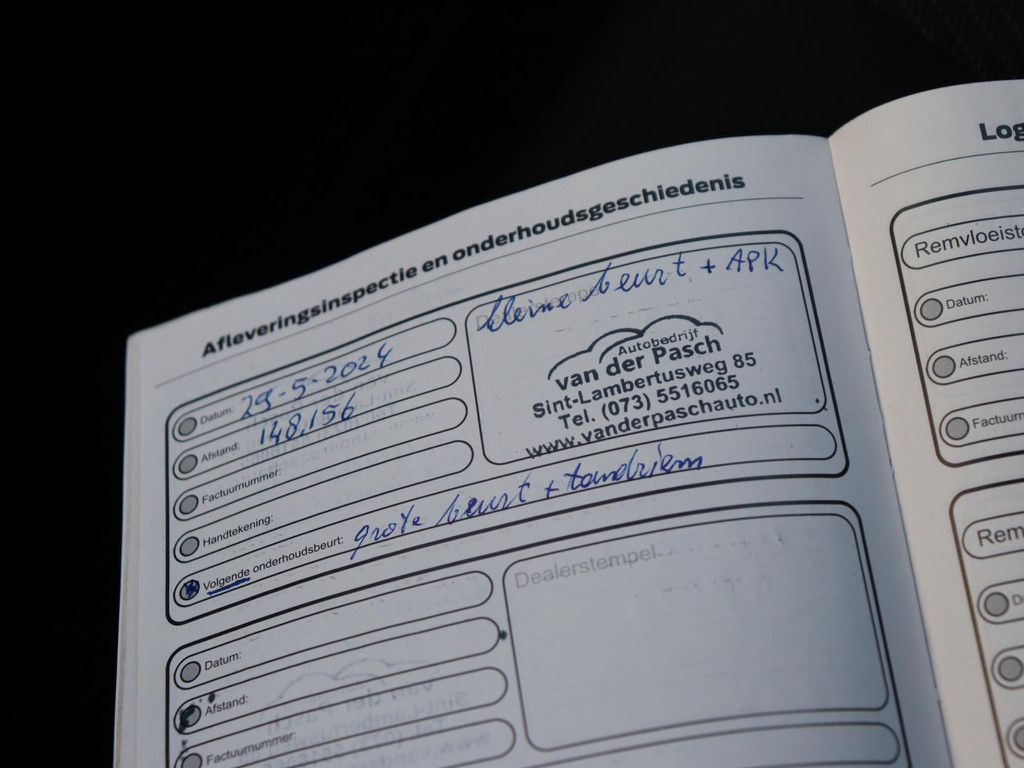 Afleveringsinspectie en onderhoudsgeschiedenis
Datum: 29-5-2024
Afstand: 148.156
Factuurnummer:
Handtekening:
Volgende onderhoudsbeurt: grote beurt + tandriem
kleine beurt + APK
Autobedrijf
van der Pasch
Sint-Lambertusweg 85
Tel. (073) 5516065
www.vanderpaschauto.nl
Datum:
Afstand:
Factuurnummer:
Dealerstempel
Log
Remvloeisto
Datum:
Afstand:
Factuurn
Rem
D